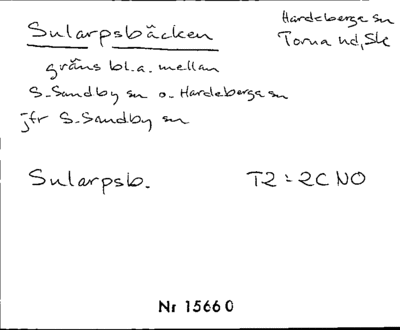 Sularpsbäcken
Hardeberga sn
Torna hd, Sk
gräns bl.a. mellan
S. Sandby sn o. Hardeberga sn
jfr S. Sandby sn
Sularpsb.
T2:2C NO
Nr 15660